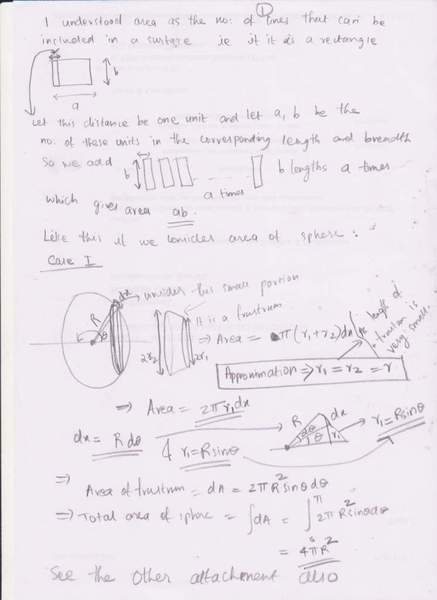 ①
I understood area as the no: of lines that can be
included in a surface ie if it is a rectangle
b
a
Let this distance be one unit and let a, b be the
no. of these units in the corresponding length and breadth
So we add b b lengths a times
a times
which gives area ab.
Like this if we consider area of sphere :
Case I
dx consider this small portion
R
θ
It is a frustrum
2r2 2r1
⇒ Area = π(r1+r2)dx
length of frustrum is very small.
Approximation ⇒ r1 = r2 = r
⇒ Area = 2πr1dx
dx = Rdθ & r1 = Rsinθ
R dx
dθ
θ r1
r1 = Rsinθ
⇒ Area of frustrum = dA = 2πR²sinθdθ
⇒ Total area of sphere = ∫dA = ∫ 2πR²sinθdθ
π
= 4πR²
See the other attachment also